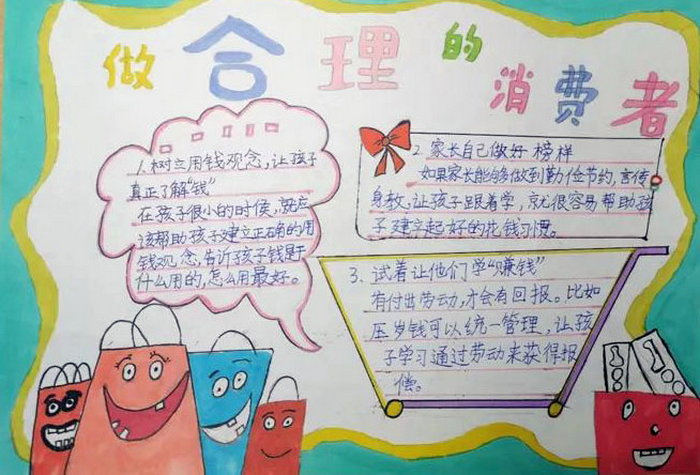 做合理的消费者
1.树立用钱观念,让孩子
真正了解“钱”
在孩子很小的时候,就应
该帮助孩子建立正确的用
钱观念,告诉孩子钱是干
什么用的,怎么用最好。
2 家长自己做好榜样
如果家长能够做到勤俭节约,言传
身教,让孩子跟着学,就很容易帮助孩
子建立起好的花钱习惯。
3、试着让他们学“赚钱”
有付出劳动,才会有回报。比如
压岁钱可以统一管理,让孩
子学习通过劳动来获得报
偿。